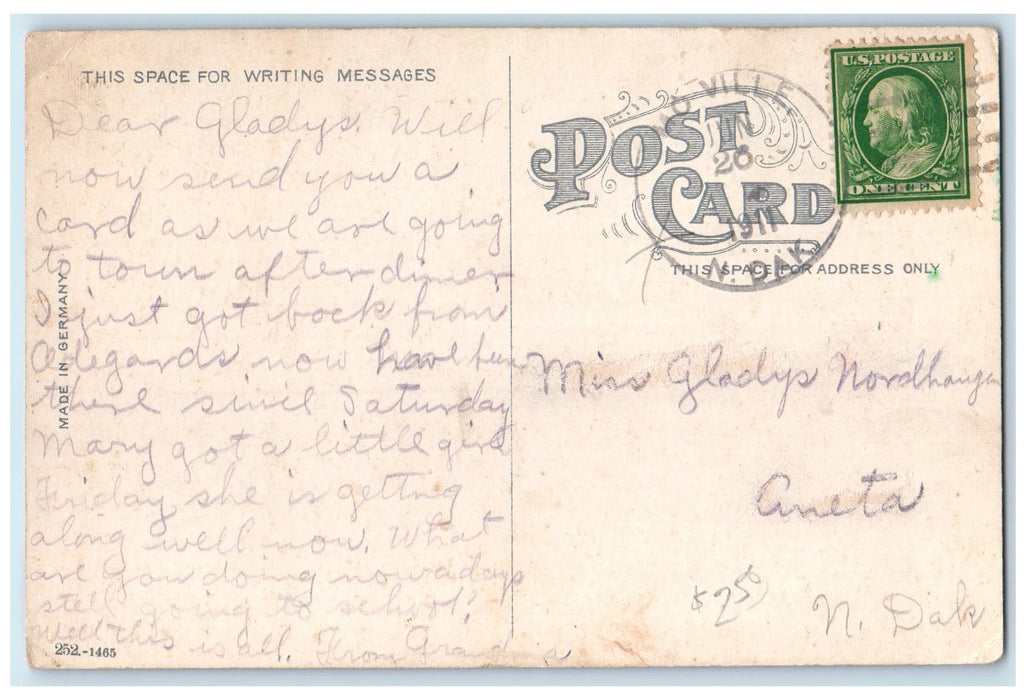 THIS SPACE FOR WRITING MESSAGES
Dear Gladys. Will
now send you a
card as we are going
to town after dinner
I just got back from
Odegards now have been
there since Saturday
Mary got a little girl
Friday she is getting
along well now. What
are you doing nowadays
still going to school?
Well this is all. From Grandma
MADE IN GERMANY
252.-1465
POST CARD
VILLE
26
1911
N. DAK
U.S. POSTAGE
ONE CENT
THIS SPACE FOR ADDRESS ONLY
Miss Gladys Nordhaugen
Aneta
N. Dak
$2.50